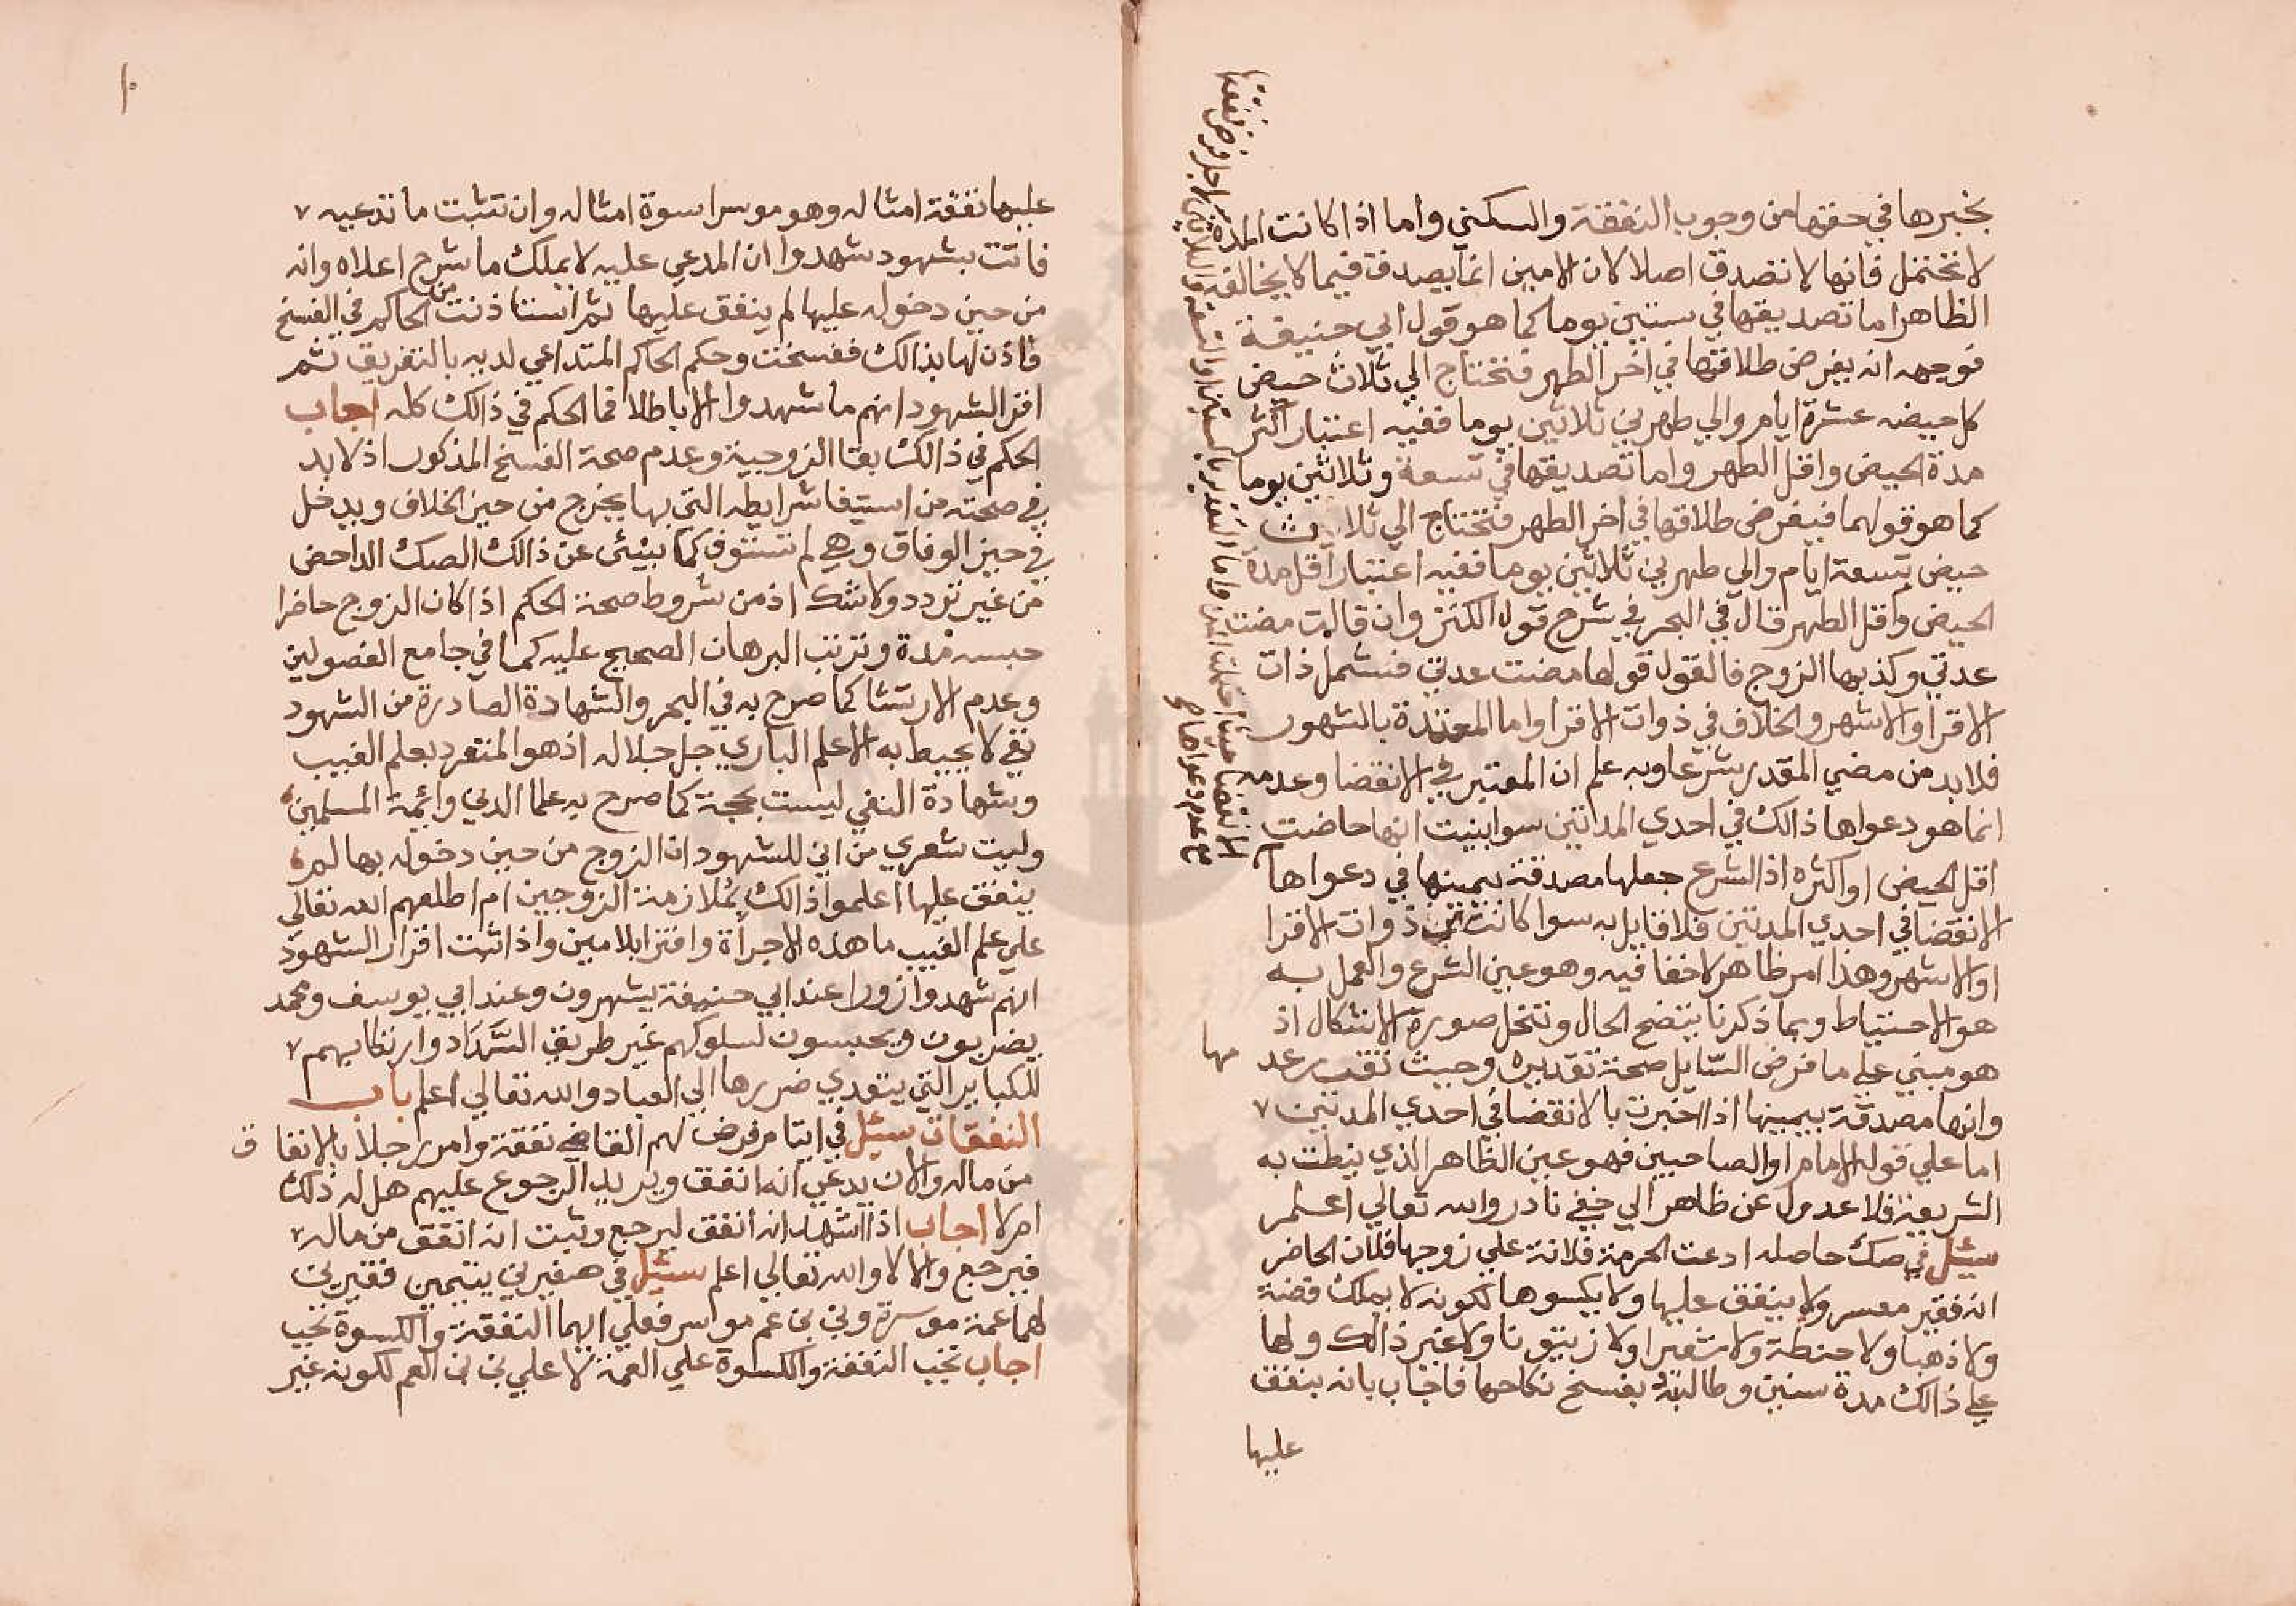 بخبرها في حقها من وجوب النفقة والسكني واما اذا كانت المدة
لا تحتمل فانها لا تصدق اصلا لان الامين انما يصدق فيما لا يخالفه
الظاهر اما تصديقها في ستين يوما كما هو قول ابي حنيفة
فوجهه انه يفرض طلاقها في اخر الطهر فتحتاج الي ثلاث حيض
كل حيضه عشرة ايام والي طهرين ثلاثين يوما ففيه اعتبار اكثر
مدة الحيض واقل الطهر واما تصديقها في تسعة وثلاثين يوما
كما هو قولهما فيفرض طلاقها في اخر الطهر فتحتاج الي ثلاث
حيض تسعة ايام والي طهرين ثلاثين يوما ففيه اعتبار اقل مدة
الحيض واقل الطهر قال في البحر في شرح قول الكنز وان قالت مضت
عدتي وكذبها الزوج فالقول قولها مضت عدتي فتشمل ذات
الاقرا والاشهر والخلاف في ذوات الاقرا واما المعتدة بالشهور
فلابد من مضي المقدر شرعا وبه علم ان المعتبر في الانقضا وعدمه
انما هو دعواها ذالك في احدي المدتين سوا بنيت انها حاضت
اقل الحيض او اكثره اذ الشرع جعلها مصدقة بيمينها في دعواها
الانقضا في احدي المدتين فلا قايل به سوا كانت من ذوات الاقرا
او الاشهر وهذا امر ظاهر لا خفا فيه وهو عين الشرع والعمل به
هو الاحتياط وبما ذكرنا يتضح الحال وتنحل صورة الاشكال اذ
هو مبني علي ما فرض السايل صحة تقديره وحيث تقرر عد مها
وانها مصدقة بيمينها اذا اخبرت بالانقضا في احدي المدتين
اما علي قول الامام او الصاحبين فهو عين الظاهر الذي نيطت به
الشريعة فلا عدول عن ظاهر الي خفي نادر والله تعالي اعلم
سئل في صك حاصله ادعت الحرمة فلانة علي زوجها فلان الحاضر
انه فقير معسر ولا ينفق عليها ولا يكسوها لكونه لا يملك فضة
ولا ذهبا ولا حنطة ولا شعيرا ولا زيتونا ولا غير ذالك ولها
علي ذالك مدة سنين وطالبته بفسخ نكاحها فاجاب بانه ينفق
عليها
١٠
عليها نفقة امثاله وهو موسر اسوة امثاله وان تثبت ما تدعيه
فاتت بشهود شهدوا ان المدعي عليه لا يملك ما شرح اعلاه وانه
من حين دخوله عليها لم ينفق عليها ثم استاذنت من الحاكم في الفسخ
فاذن لها بذالك ففسخت وحكم الحاكم المتداعي لديه بالتفريق ثم
اقر الشهود انهم ما شهدوا الا باطلا فما الحكم في ذالك كله اجاب
الحكم في ذالك بقا الزوجية وعدم صحة الفسخ المذكور اذ لا بد
في صحته من استيفا شرايطه التي بها يخرج من حيز الخلاف ويدخل
في حيز الوفاق وهي لم تستوف كما ينبئ عن ذالك الصك الداحض
من غير تردد ولا شك اذ من شروط صحة الحكم اذا كان الزوج حاضرا
حبسه مدة وترتب البرهان الصحيح عليه كما في جامع الفصولين
وعدم الارتشا كما صرح به في البحر والشهادة الصادرة من الشهود
نفي لا يحيط به الا علم الباري جل جلاله اذ هو المنفرد بعلم الغيب
وشهادة النفي ليست بحجة كما صرح به علما الدين وائمة المسلمين
وليت شعري من اني للشهود ان الزوج من حين دخوله بها لم
ينفق عليها اعلموا ذالك بملازمة الزوجين ام اطلعهم الله تعالي
علي علم الغيب ما هذه الا جرأة وافترا بلا مين واذا ثبت اقرار الشهود
انهم شهدوا زورا عند ابي حنيفة يشهرون وعند ابي يوسف ومحمد
يضربون ويحبسون لسلوكهم غير طريق السداد وارتكابهم
للكباير التي يتعدي ضررها الي العباد والله تعالي اعلم باب
النفقات سئل في ايتام فرض لهم القاضي نفقة وامر رجلا بالانفاق
من ماله والان يدعي انه انفق ويريد الرجوع عليهم هل له ذلك
ام لا اجاب اذا اشهد انه انفق ليرجع وثبت انه انفق من ماله
فيرجع والا لا والله تعالي اعلم سئل في صغيرين يتيمين فقيرين
لهما عمة موسرة وبني بن عم مواسر فعلي ايهما النفقة والكسوة تجب
اجاب تجب النفقة والكسوة علي العمة لا علي بني بن العم لكونه غير